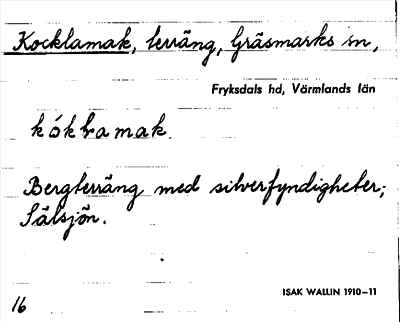 Kocklamak, terräng, Gräsmarks sn,
Fryksdals hd, Värmlands län
kóklamak.
Bergterräng med silverfyndigheter;
Sälsjön.
ISAK WALLIN 1910–11
16